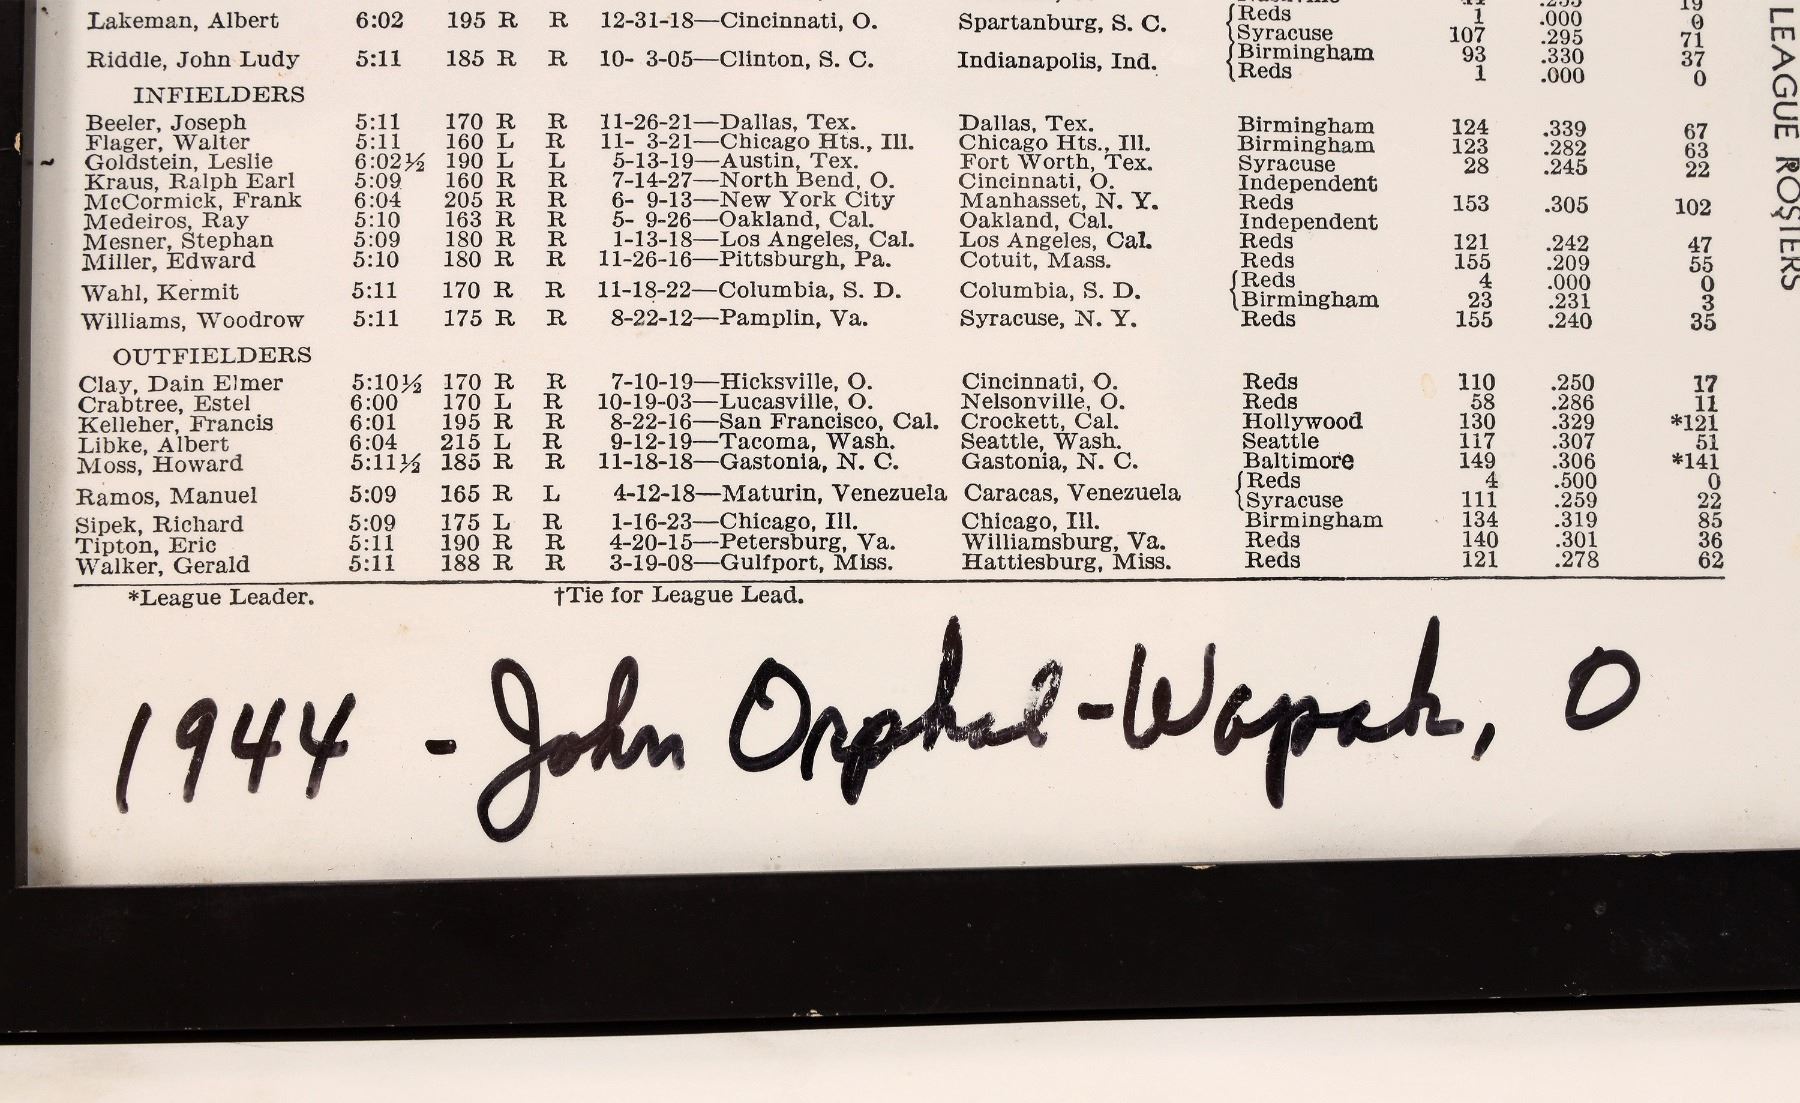 Lakeman, Albert 6:02 195 R R 12-31-18—Cincinnati, O. Spartanburg, S. C. {Reds 1 .000 0
{Syracuse 107 .295 71
Riddle, John Ludy 5:11 185 R R 10- 3-05—Clinton, S. C. Indianapolis, Ind. {Birmingham 93 .330 37
{Reds 1 .000 0
INFIELDERS
Beeler, Joseph 5:11 170 R R 11-26-21—Dallas, Tex. Dallas, Tex. Birmingham 124 .339 67
Flager, Walter 5:11 160 L R 11- 3-21—Chicago Hts., Ill. Chicago Hts., Ill. Birmingham 123 .282 63
Goldstein, Leslie 6:02½ 190 L L 5-13-19—Austin, Tex. Fort Worth, Tex. Syracuse 28 .245 22
Kraus, Ralph Earl 5:09 160 R R 7-14-27—North Bend, O. Cincinnati, O. Independent
McCormick, Frank 6:04 205 R R 6- 9-13—New York City Manhasset, N. Y. Reds 153 .305 102
Medeiros, Ray 5:10 163 R R 5- 9-26—Oakland, Cal. Oakland, Cal. Independent
Mesner, Stephan 5:09 180 R R 1-13-18—Los Angeles, Cal. Los Angeles, Cal. Reds 121 .242 47
Miller, Edward 5:10 180 R R 11-26-16—Pittsburgh, Pa. Cotuit, Mass. Reds 155 .209 55
Wahl, Kermit 5:11 170 R R 11-18-22—Columbia, S. D. Columbia, S. D. {Reds 4 .000 0
{Birmingham 23 .231 3
Williams, Woodrow 5:11 175 R R 8-22-12—Pamplin, Va. Syracuse, N. Y. Reds 155 .240 35
OUTFIELDERS
Clay, Dain Elmer 5:10½ 170 R R 7-10-19—Hicksville, O. Cincinnati, O. Reds 110 .250 17
Crabtree, Estel 6:00 170 L R 10-19-03—Lucasville, O. Nelsonville, O. Reds 58 .286 11
Kelleher, Francis 6:01 195 R R 8-22-16—San Francisco, Cal. Crockett, Cal. Hollywood 130 .329 *121
Libke, Albert 6:04 215 L R 9-12-19—Tacoma, Wash. Seattle, Wash. Seattle 117 .307 51
Moss, Howard 5:11½ 185 R R 11-18-18—Gastonia, N. C. Gastonia, N. C. Baltimore 149 .306 *141
Ramos, Manuel 5:09 165 R L 4-12-18—Maturin, Venezuela Caracas, Venezuela {Reds 4 .500 0
{Syracuse 111 .259 22
Sipek, Richard 5:09 175 L R 1-16-23—Chicago, Ill. Chicago, Ill. Birmingham 134 .319 85
Tipton, Eric 5:11 190 R R 4-20-15—Petersburg, Va. Williamsburg, Va. Reds 140 .301 36
Walker, Gerald 5:11 188 R R 3-19-08—Gulfport, Miss. Hattiesburg, Miss. Reds 121 .278 62
*League Leader. †Tie for League Lead.
1944 - John Orphal - Wapak, O
LEAGUE ROSTERS